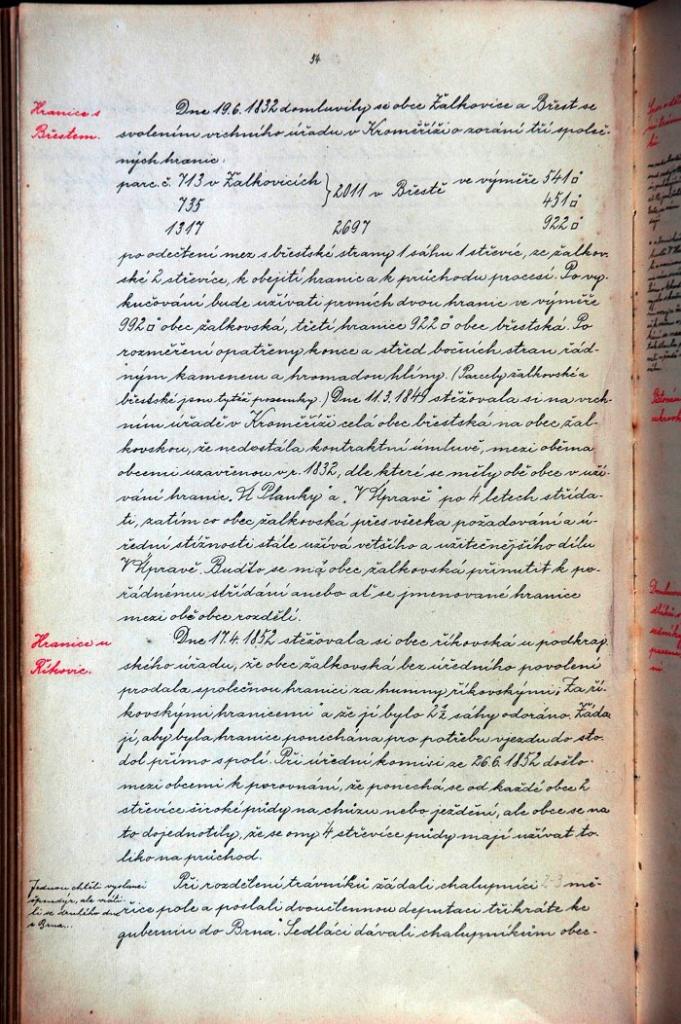 54
Hranice s
Břestem.
Dne 19.6. 1832 domluvily se obce Žalkovice a Břest se
svolením vrchního úřadu v Kroměříži o zorání tří společ-
ných hranic.
parc. č. 713 v Žalkovicích } 2011 v Břestě ve výměře 541□
735 451□
1317 2697 922□
po odečtení mez s břestské strany 1 sáhu 1 střevíc, ze žalkov-
ské 2 střevíce, k obejití hranic a k průchodu procesí. Po vy-
kučování bude užívati prvních dvou hranic ve výměře
992□ obec žalkovská, třetí hranice 922□ obec břestská. Po
rozměření opatřeny konce a střed bočních stran řád-
ným kamenem a hromadou hlíny. (Parcely žalkovské a
břestské jsou tytéž pozemky.) Dne 11.3. 184 stěžovala si na vrch-
ním úřadě v Kroměříži celá obec břestská na obec žal-
kovskou, že nedostála kontraktní úmluvě, mezi oběma
obcemi uzavřenou v r. 1832, dle které se měly obě obce v uží-
vání hranic „U Planky" a „V Úpravě" po 4 letech střída-
ti, zatím co obec žalkovská přes všecka požadování a ú-
řední stížnosti stále užívá většího a užitečnějšího dílu
V Úpravě. Buďto se má obec žalkovská přinutit k po-
řádnému střídání anebo ať se jmenované hranice
mezi obě obce rozdělí.
Hranice u
Říkovic.
Dne 17.4. 1852 stěžovala si obec říkovská u podkraj-
ského úřadu, že obec žalkovská bez úředního povolení
prodala společnou hranici za humny říkovskými „Za ří-
kovskými hranicemi" a že jí bylo 2½ sáhy odoráno. Žádá
jí, aby byla hranice ponechána pro potřebu vjezdu do sto-
dol přímo s polí. Při úřední komisi ze 26.6. 1852 došlo
mezi obcemi k porovnání, že ponechá se od každé obce 2
střevíce široké půdy na chůzu nebo ježdění, ale obce se na
to dojednotily, že se ony 4 střevíce půdy mají užívat to-
liko na průchod.
Jednou chtěli vyslanci
ale vráti-
li se druhého dne
z Brna...
Při rozdělení trávníků žádali chalupníci 2-3 mě-
řice pole a poslali dvoučlennou deputaci třikráte ke
guberniu do Brna. Sedláci dávali chalupníkům obec-